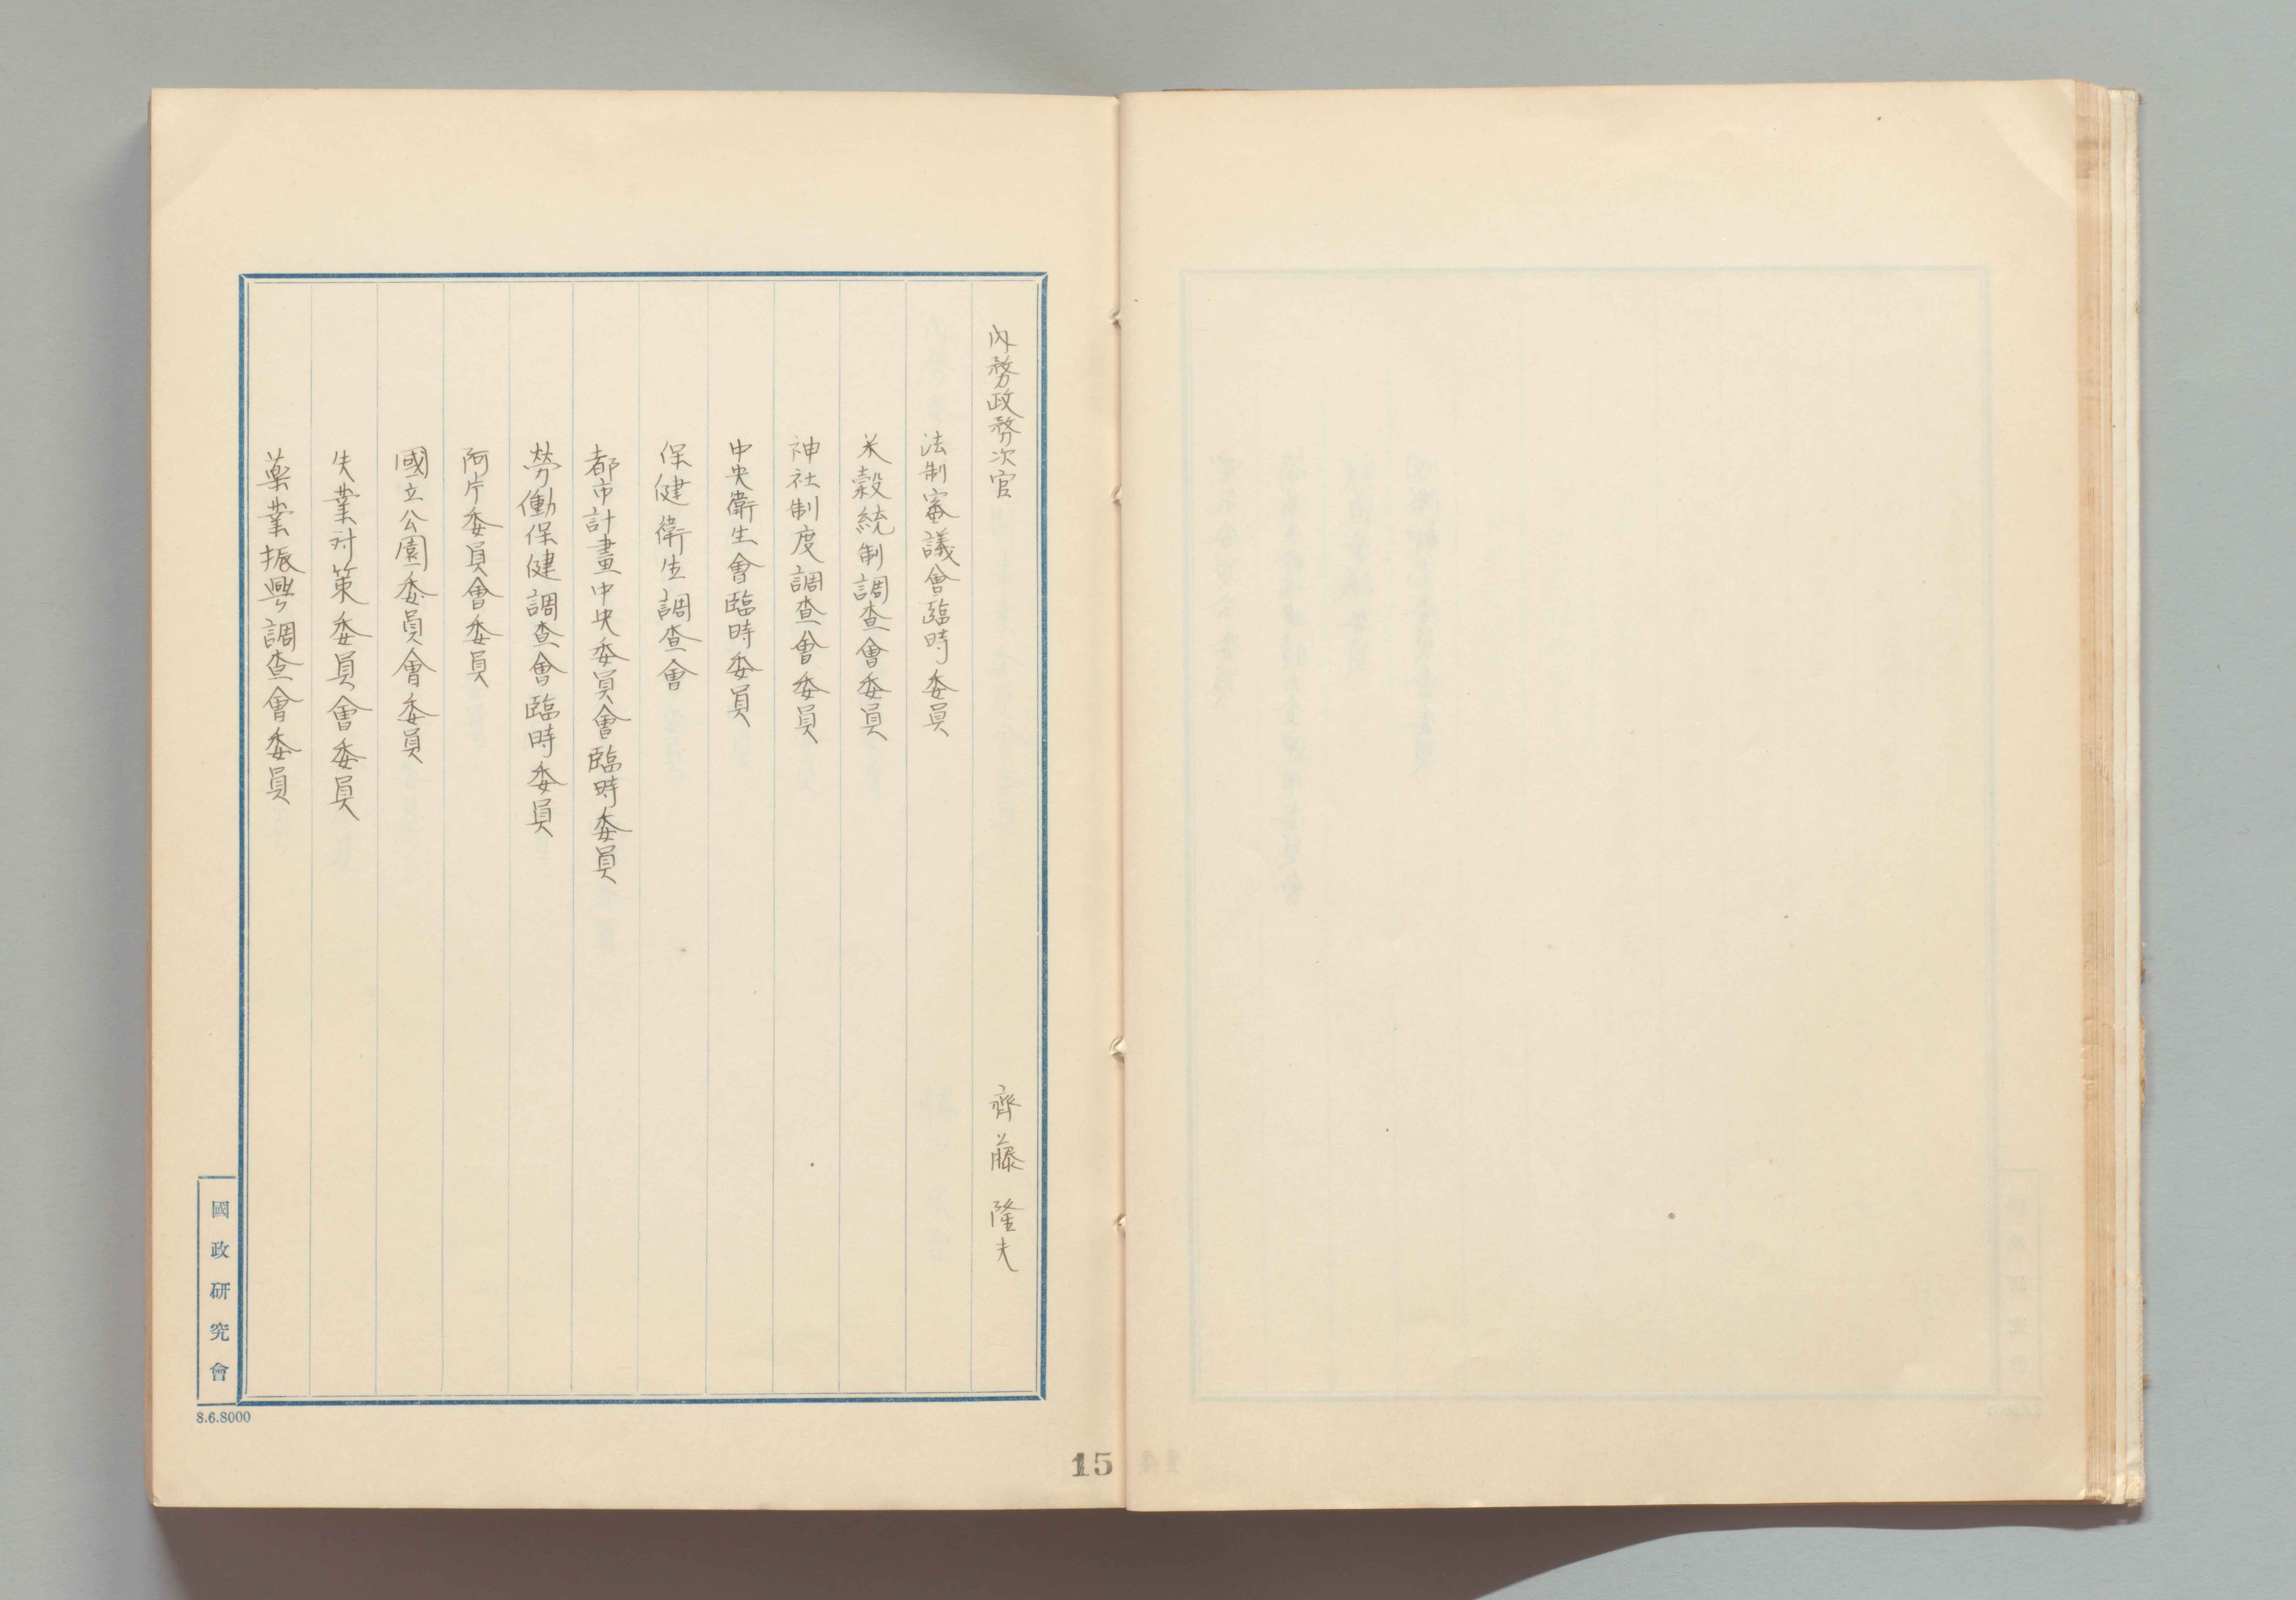 內務政務次官　齊藤隆夫
法制審議會臨時委員
米穀統制調查會委員
神社制度調查會委員
中央衛生會臨時委員
保健衛生調查會
都市計畫中央委員會臨時委員
勞働保健調查會臨時委員
阿片委員會委員
國立公園委員會委員
失業対策委員會委員
薬業振興調查會委員
國政研究會
8.6.8000
15